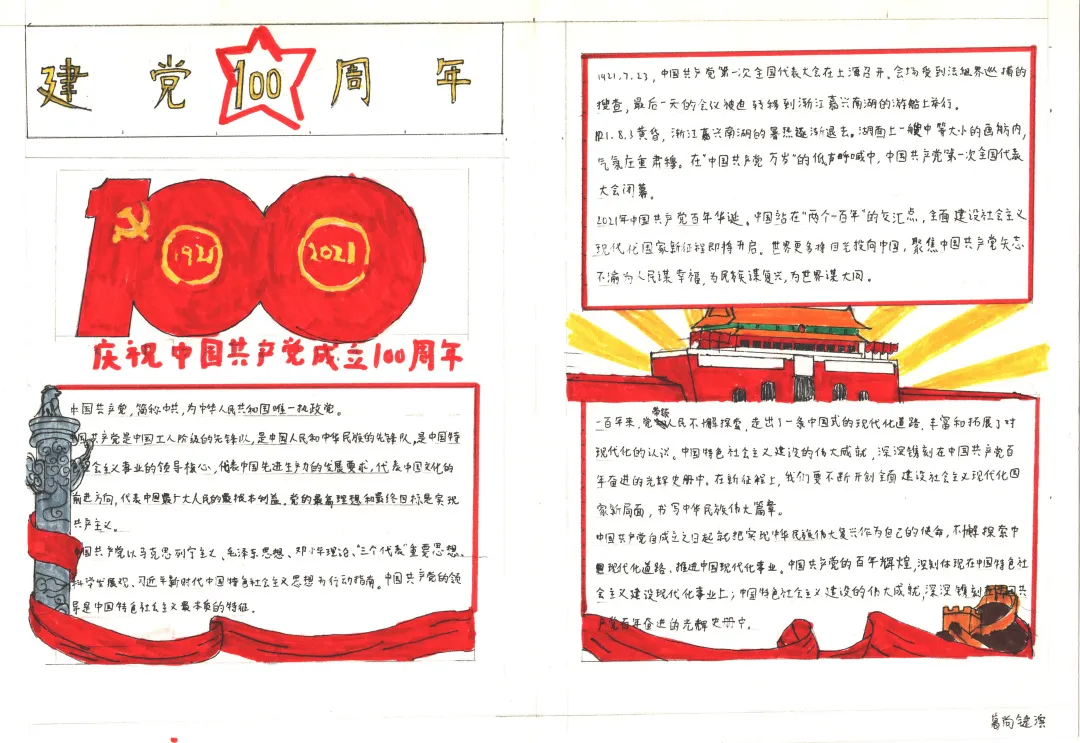 建党100周年
1921
2021
庆祝中国共产党成立100周年
中国共产党，简称中共，为中华人民共和国唯一执政党。
中国共产党是中国工人阶级的先锋队，是中国人民和中华民族的先锋队，是中国特
色社会主义事业的领导核心，代表中国先进生产力的发展要求，代表中国文化的
前进方向，代表中国最广大人民的最根本利益。党的最高理想和最终目标是实现
共产主义。
中国共产党以马克思列宁主义、毛泽东思想、邓小平理论、“三个代表”重要思想、
科学发展观、习近平新时代中国特色社会主义思想为行动指南。中国共产党的领
导是中国特色社会主义最本质的特征。
1921.7.23，中国共产党第一次全国代表大会在上海召开。会场受到法租界巡捕的
搜查，最后一天的会议被迫转移到浙江嘉兴南湖的游船上举行。
8.3黄昏，浙江嘉兴南湖的暑热逐渐退去。湖面上一艘中等大小的画舫内，
气氛庄重肃穆。在“中国共产党万岁”的低声呼喊中，中国共产党第一次全国代表
大会闭幕。
2021年中国共产党百年华诞。中国站在“两个一百年”的交汇点，全面建设社会主义
现代化国家新征程即将开启。世界更多将目光投向中国，聚焦中国共产党矢志
不渝为人民谋幸福，为民族谋复兴，为世界谋大同。
一百年来，党带领人民不懈探索，走出了一条中国式的现代化道路，丰富和拓展了对
现代化的认识。中国特色社会主义建设的伟大成就，深深镌刻在中国共产党百
年奋进的光辉史册中。在新征程上，我们要不断开创全面建设社会主义现代化国
家新局面，书写中华民族伟大篇章。
中国共产党自成立之日起就把实现中华民族伟大复兴作为自己的使命，不懈探索中
国现代化道路、推进中国现代化事业。中国共产党的百年辉煌，深刻体现在中国特色社
会主义建设现代化事业上；中国特色社会主义建设的伟大成就，深深镌刻在中国共
产党百年奋进的光辉史册中。